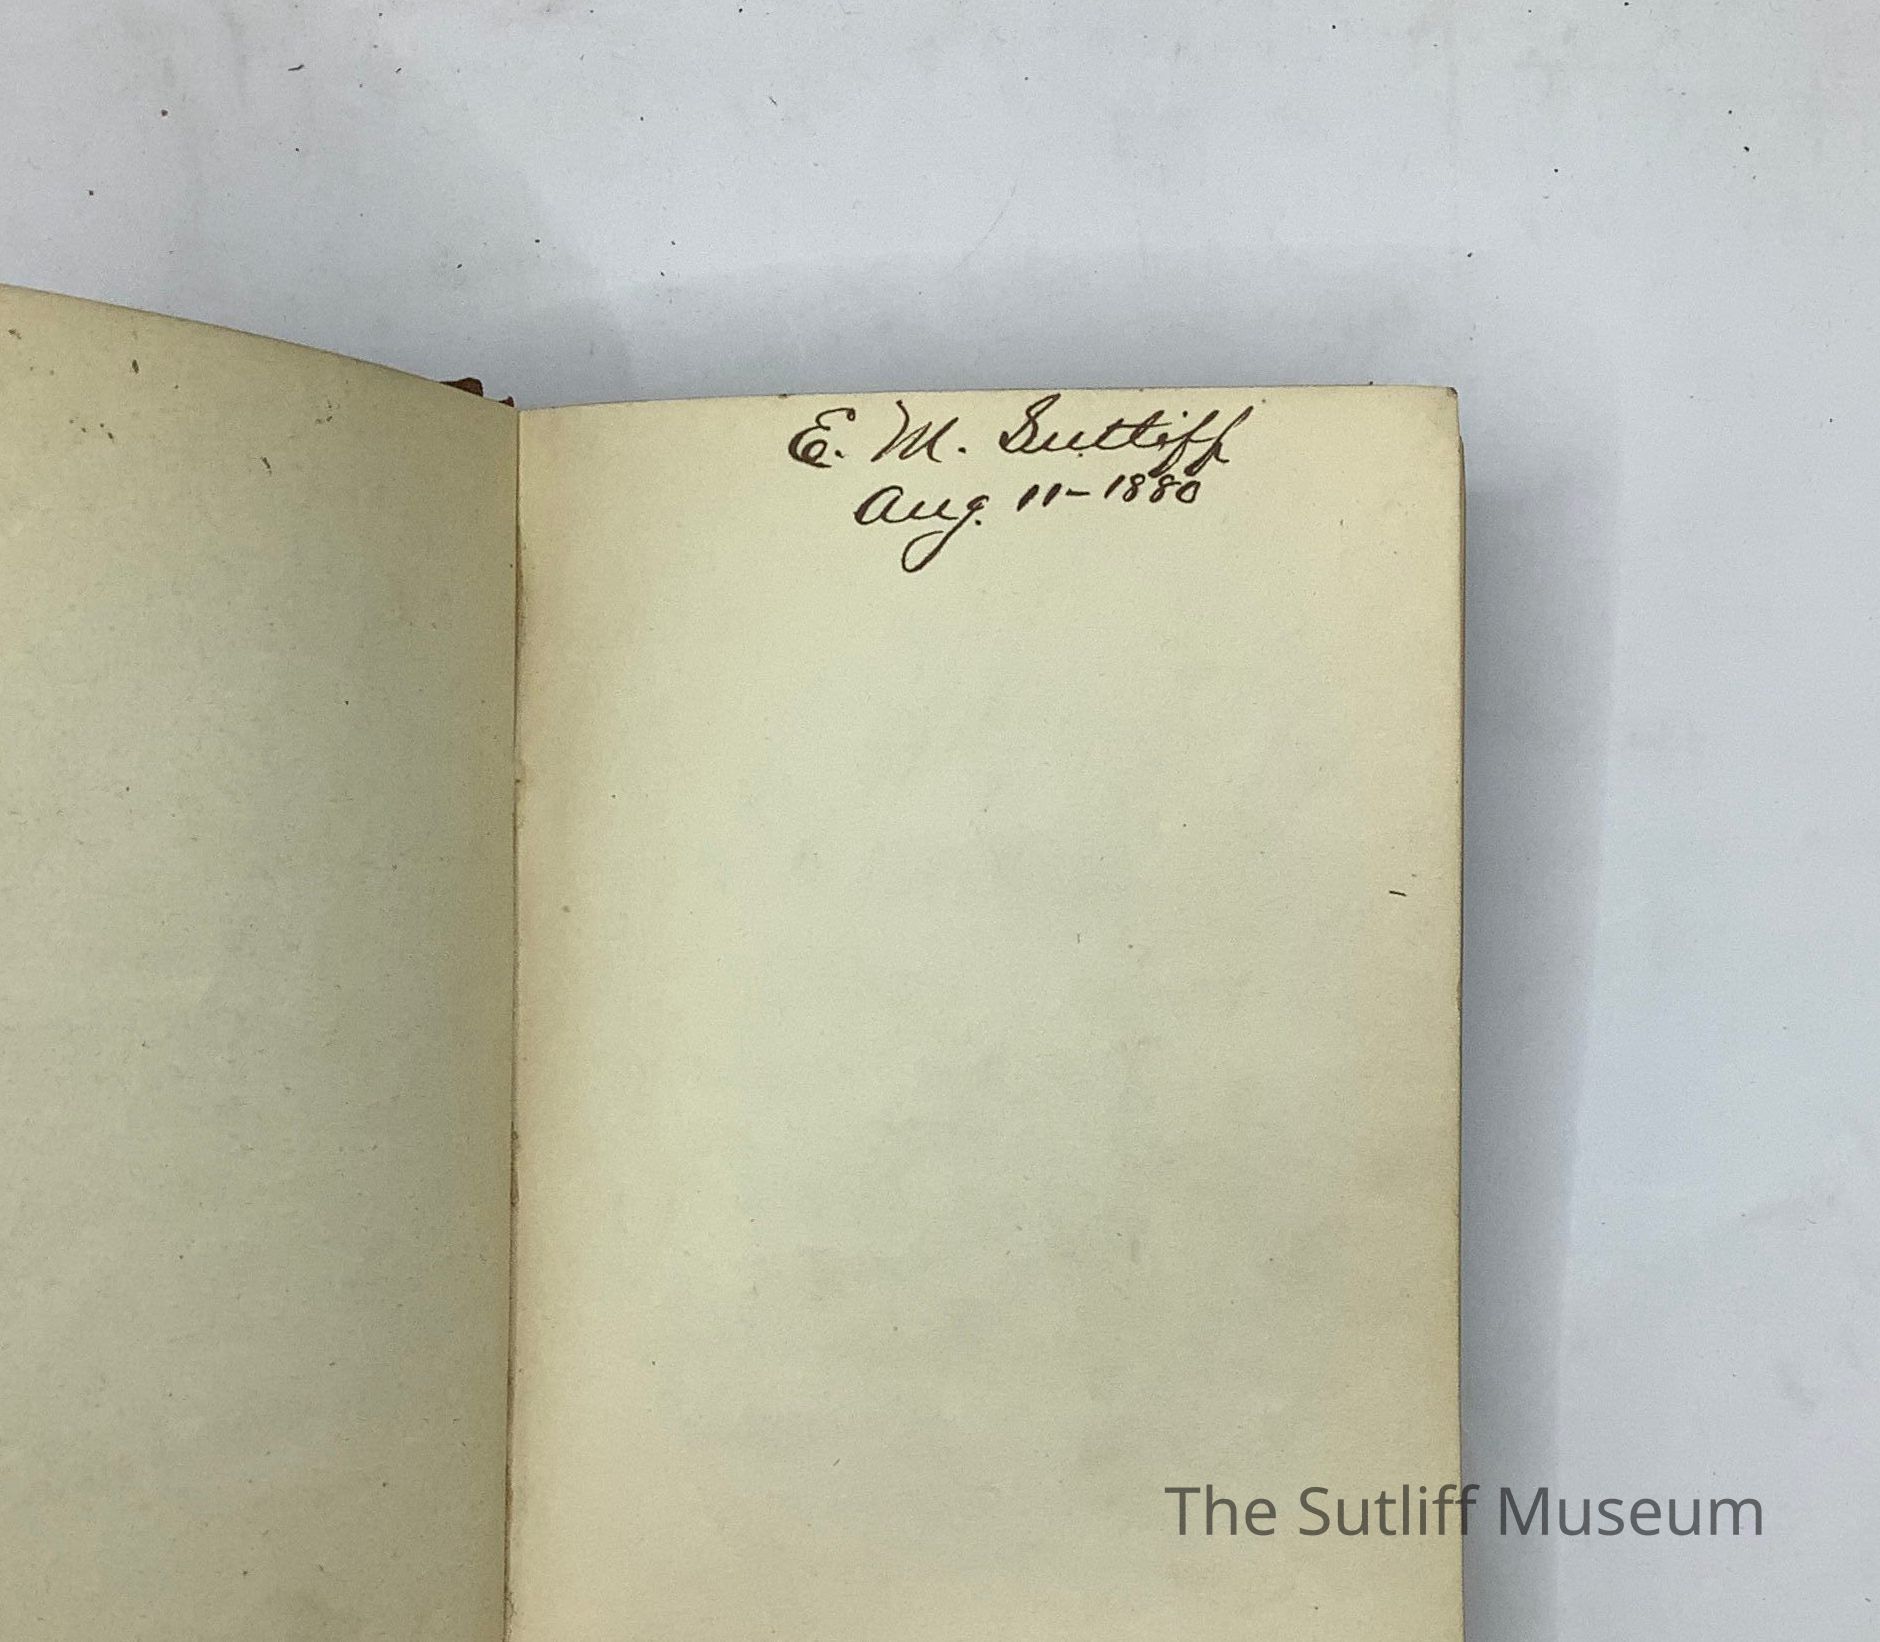 E. M. Sutliff
Aug. 11-1880
The Sutliff Museum